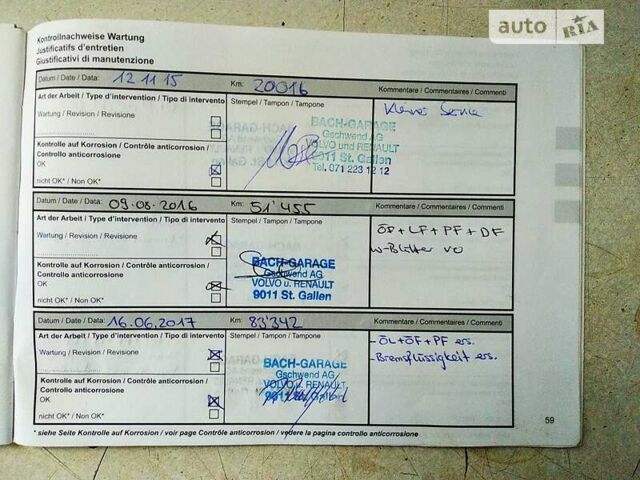 auto RIA
Kontrollnachweise Wartung
Justificatifs d'entretien
Giustificativi di manutenzione
Datum / Date / Data: 12 11 15 Km: 20016 Kommentare / Commentaires / Commenti
Art der Arbeit / Type d'intervention / Tipo di intervento Stempel / Stampon / Tampone
Wartung / Revision / Revisione
Kontrolle auf Korrosion / Contrôle anticorrosion / Controllo anticorrosione
OK
nicht OK* / Non OK*
BACH-GARAGE
Gschwend AG
VOLVO und RENAULT
9011 St. Gallen
Tel. 071 223 12 12
Datum / Date / Data: 09.08.2016 Km: 51'455 Kommentare / Commentaires / Commenti
Art der Arbeit / Type d'intervention / Tipo di intervento Stempel / Stampon / Tampone
Wartung / Revision / Revisione
Kontrolle auf Korrosion / Contrôle anticorrosion / Controllo anticorrosione
OK
nicht OK* / Non OK*
BACH-GARAGE
Gschwend AG
VOLVO u. RENAULT
9011 St. Gallen
ÖF + LF + PF + DF
W-Blätter VO
Datum / Date / Data: 16.06.2017 Km: 83'342 Kommentare / Commentaires / Commenti
Art der Arbeit / Type d'intervention / Tipo di intervento Stempel / Stampon / Tampone
Wartung / Revision / Revisione
Kontrolle auf Korrosion / Contrôle anticorrosion / Controllo anticorrosione
OK
nicht OK* / Non OK*
BACH-GARAGE
Gschwend AG
VOLVO u. RENAULT
9011 St. Gallen
- ÖL + ÖF + PF ers.
- Bremsflüssigkeit ers.
* siehe Seite Kontrolle auf Korrosion / voir page Contrôle anticorrosion / vedere la pagina controllo anticorrosione
59